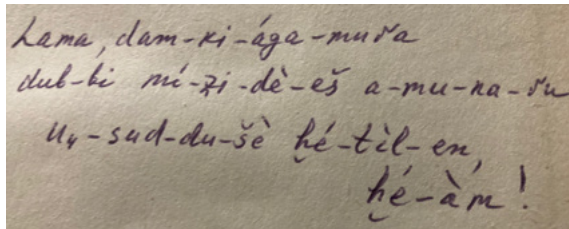 Lama, dam-ki-ága-muřa
dub-bi mí-zi-dè-eš a-mu-na-řu
u₄-sud-du-šè ḫé-tìl-en,
ḫé-àm!